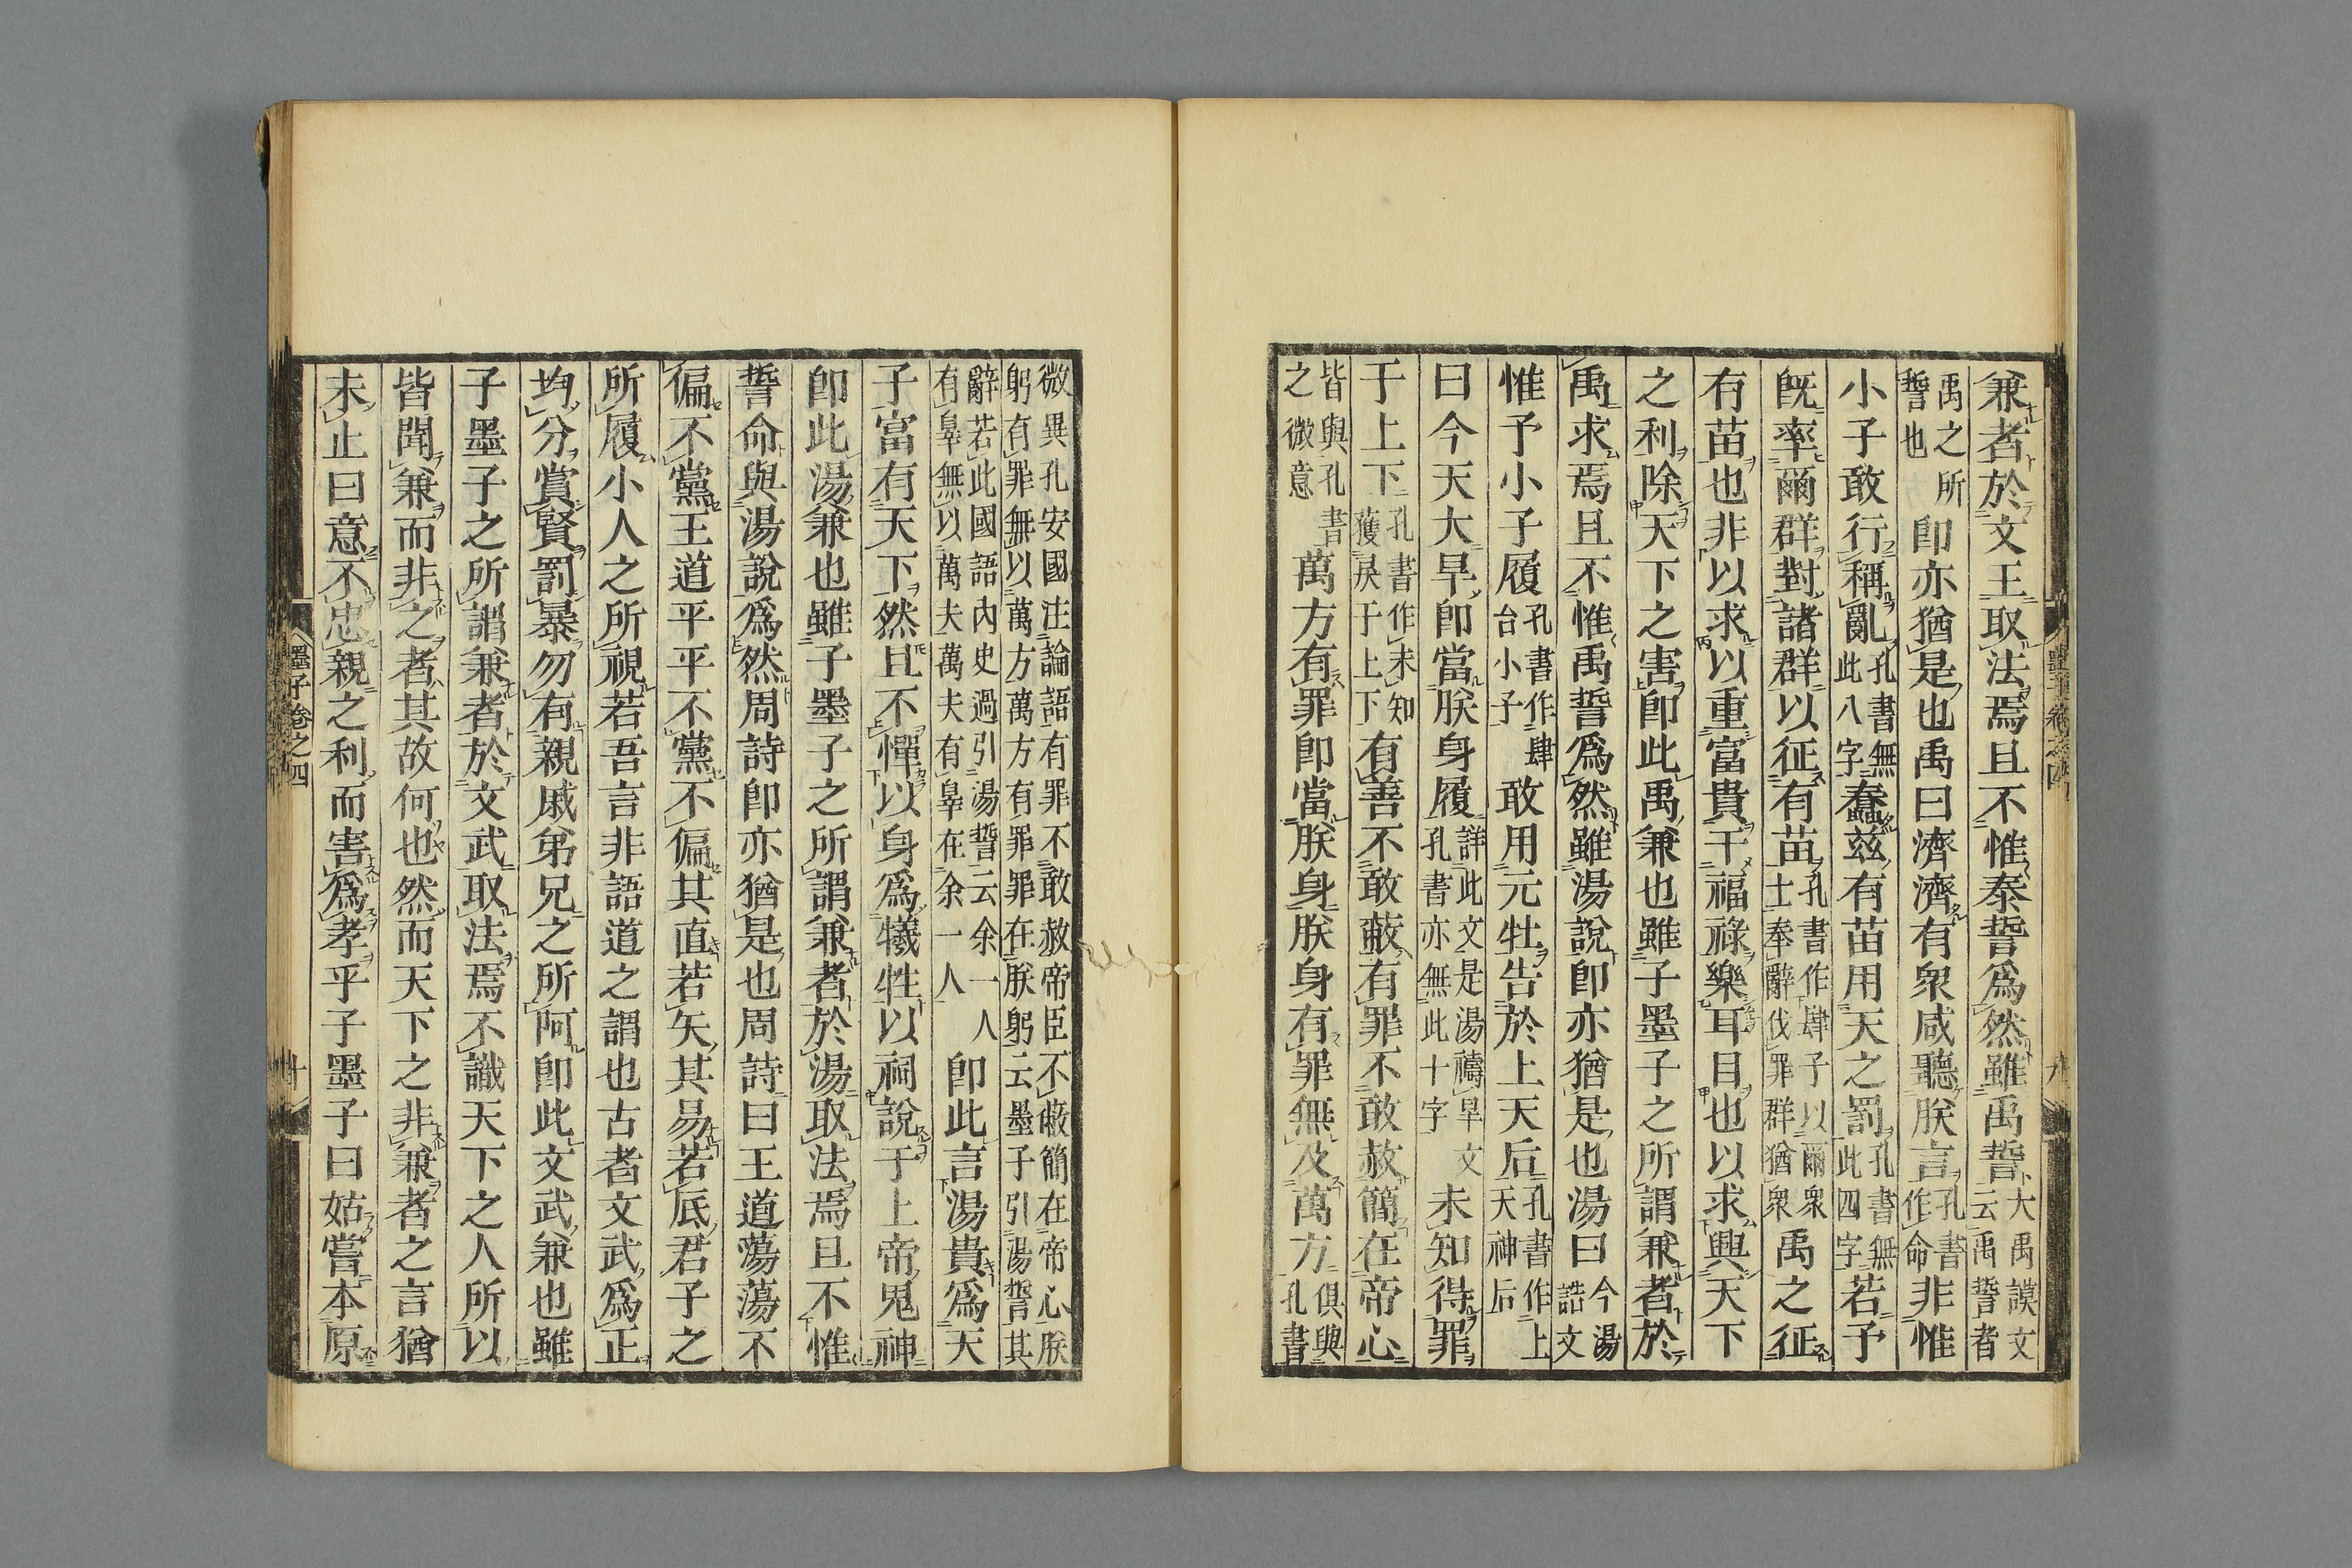 兼者於文王取法焉且不惟泰誓爲然雖禹誓大禹謨文云禹誓者
禹之所誓也卽亦猶是也禹曰濟濟有衆咸聽朕言孔書作命非惟
小子敢行稱亂孔書無此八字蠢茲有苗用天之罰孔書無此四字若予
旣率爾群對諸群以征有苗孔書作肆予以爾衆士奉辭伐罪群猶衆禹之征
有苗也非以求以重富貴干福祿樂耳目也以求興天下
之利除天下之害卽此禹兼也雖子墨子之所謂兼者於
禹求焉且不惟禹誓爲然雖湯說卽亦猶是也湯曰今湯誥文
惟予小子履孔書作肆台小子敢用元牡告於上天后孔書作上天神后
曰今天大旱卽當朕身履詳此文是湯禱旱文孔書亦無此十字未知得罪
于上下孔書作未知獲戾于上下有善不敢蔽有罪不敢赦簡在帝心
皆與孔書之微意萬方有罪卽當朕身朕身有罪無及萬方俱與孔書
微異孔安國注論語有罪不敢赦帝臣不蔽簡在帝心朕
躬有罪無以萬方萬方有罪罪在朕躬云墨子引湯誓其
辭若此國語內史過引湯誓云余一人有辠無以萬夫萬夫有辠在余一人卽此言湯貴爲天
子富有天下然且不憚以身爲犧牲以祠說于上帝鬼神
卽此湯兼也雖子墨子之所謂兼者於湯取法焉且不惟
誓命與湯說爲然周詩卽亦猶是也周詩曰王道蕩蕩不
偏不黨王道平平不黨不偏其直若矢其易若底君子之
所履小人之所視若吾言非語道之謂也古者文武爲正
均分賞賢罰暴勿有親戚弟兄之所阿卽此文武兼也雖
子墨子之所謂兼者於文武取法焉不識天下之人所以
皆聞兼而非之者其故何也然而天下之非兼者之言猶
未止曰意不忠親之利而害爲孝乎子墨子曰姑嘗本原
墨子卷之四
十